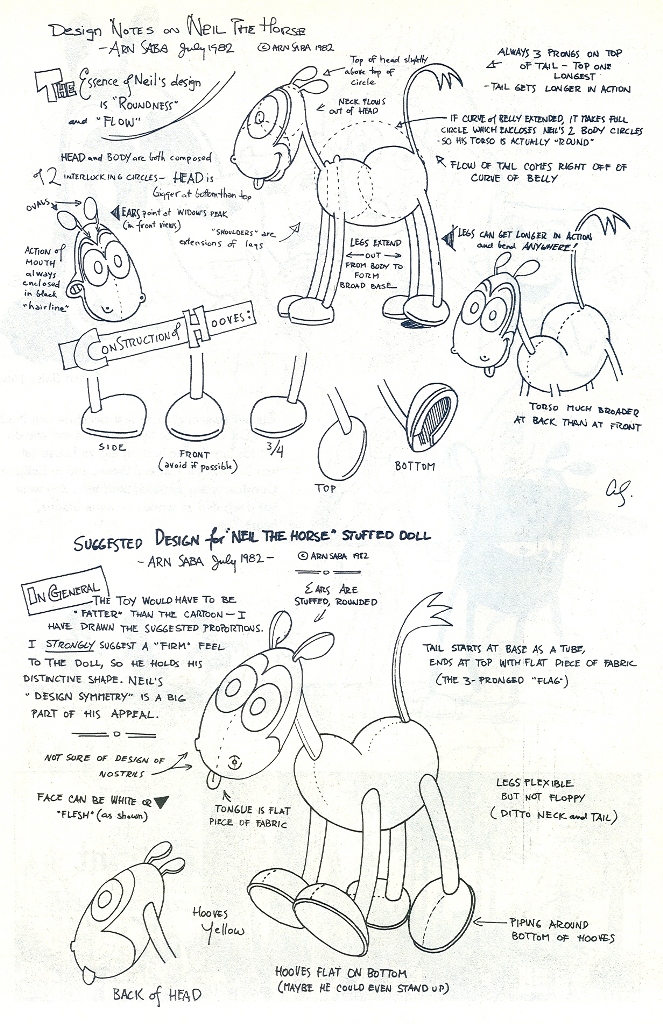 Design Notes on Neil The Horse
- Arn Saba July 1982 © ARN SABA 1982
THE Essence of Neil's design
is "ROUNDNESS"
and "FLOW"
Top of head slightly
above top of
circle
NECK FLOWS
out of HEAD
ALWAYS 3 PRONGS ON TOP
OF TAIL - TOP ONE
LONGEST
- TAIL GETS LONGER IN ACTION
IF CURVE OF BELLY EXTENDED, IT MAKES FULL
CIRCLE WHICH ENCLOSES NEIL'S 2 BODY CIRCLES
- SO HIS TORSO IS ACTUALLY "ROUND"
FLOW OF TAIL COMES RIGHT OFF OF
CURVE OF BELLY
HEAD and BODY are both composed
of 2 INTERLOCKING CIRCLES - HEAD is
bigger at bottom than top
OVALS
EARS point at WIDOW'S PEAK
(in front views)
"SHOULDERS" are
extensions of legs
ACTION of
MOUTH
always
enclosed
in black
"hairline"
LEGS EXTEND
OUT
FROM BODY TO
FORM
BROAD BASE
LEGS CAN GET LONGER IN ACTION
and bend ANYWHERE!
CONSTRUCTION of HOOVES:
TORSO MUCH BROADER
AT BACK THAN AT FRONT
SIDE
FRONT
(avoid if possible)
3/4
TOP
BOTTOM
AS.
SUGGESTED DESIGN for "NEIL THE HORSE" STUFFED DOLL
- ARN SABA July 1982 - © ARN SABA 1982
IN GENERAL
THE TOY WOULD HAVE TO BE
"FATTER" THAN THE CARTOON - I
HAVE DRAWN THE SUGGESTED PROPORTIONS.
I STRONGLY SUGGEST A "FIRM" FEEL
TO THE DOLL, SO HE HOLDS HIS
DISTINCTIVE SHAPE. NEIL'S
"DESIGN SYMMETRY" IS A BIG
PART OF HIS APPEAL.
EARS ARE
STUFFED, ROUNDED
TAIL STARTS AT BASE AS A TUBE,
ENDS AT TOP WITH FLAT PIECE OF FABRIC
(THE 3-PRONGED "FLAG")
NOT SURE OF DESIGN OF
NOSTRILS
FACE CAN BE WHITE OR
"FLESH" (as shown)
TONGUE IS FLAT
PIECE OF FABRIC
LEGS FLEXIBLE
BUT NOT FLOPPY
(DITTO NECK and TAIL)
HOOVES
Yellow
PIPING AROUND
BOTTOM OF HOOVES
BACK of HEAD
HOOVES FLAT ON BOTTOM
(MAYBE HE COULD EVEN STAND UP)